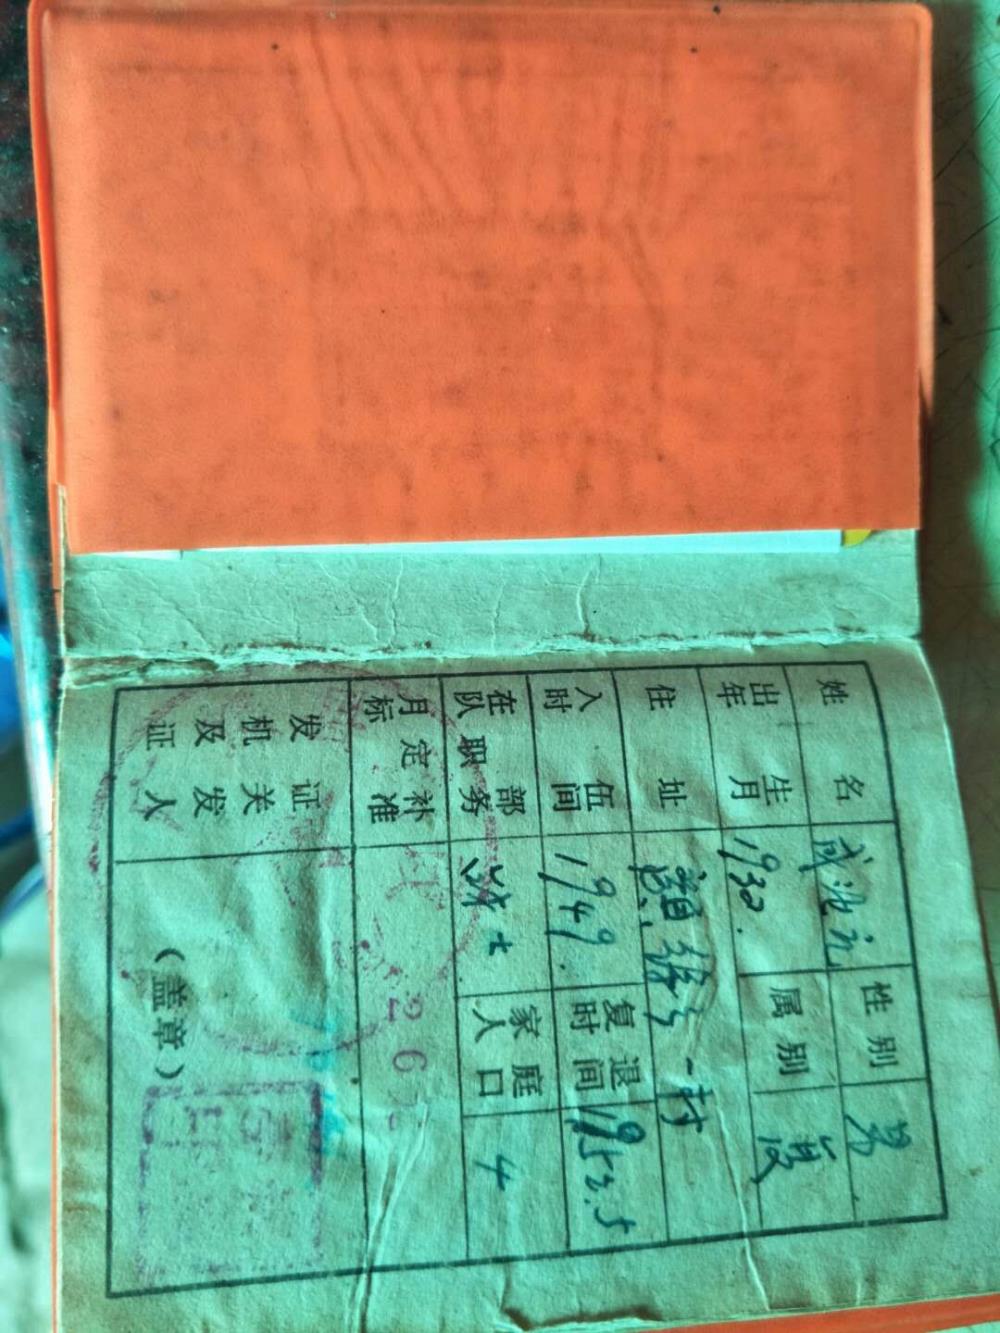 姓名 性别 男
出生年月 1930. 属别 复
住址 一村
入伍时间 1949. 复退时间 1952.5
在部队职务 战士 家庭人口 4
月定补标准 26
发证机关及发证人 （盖章）